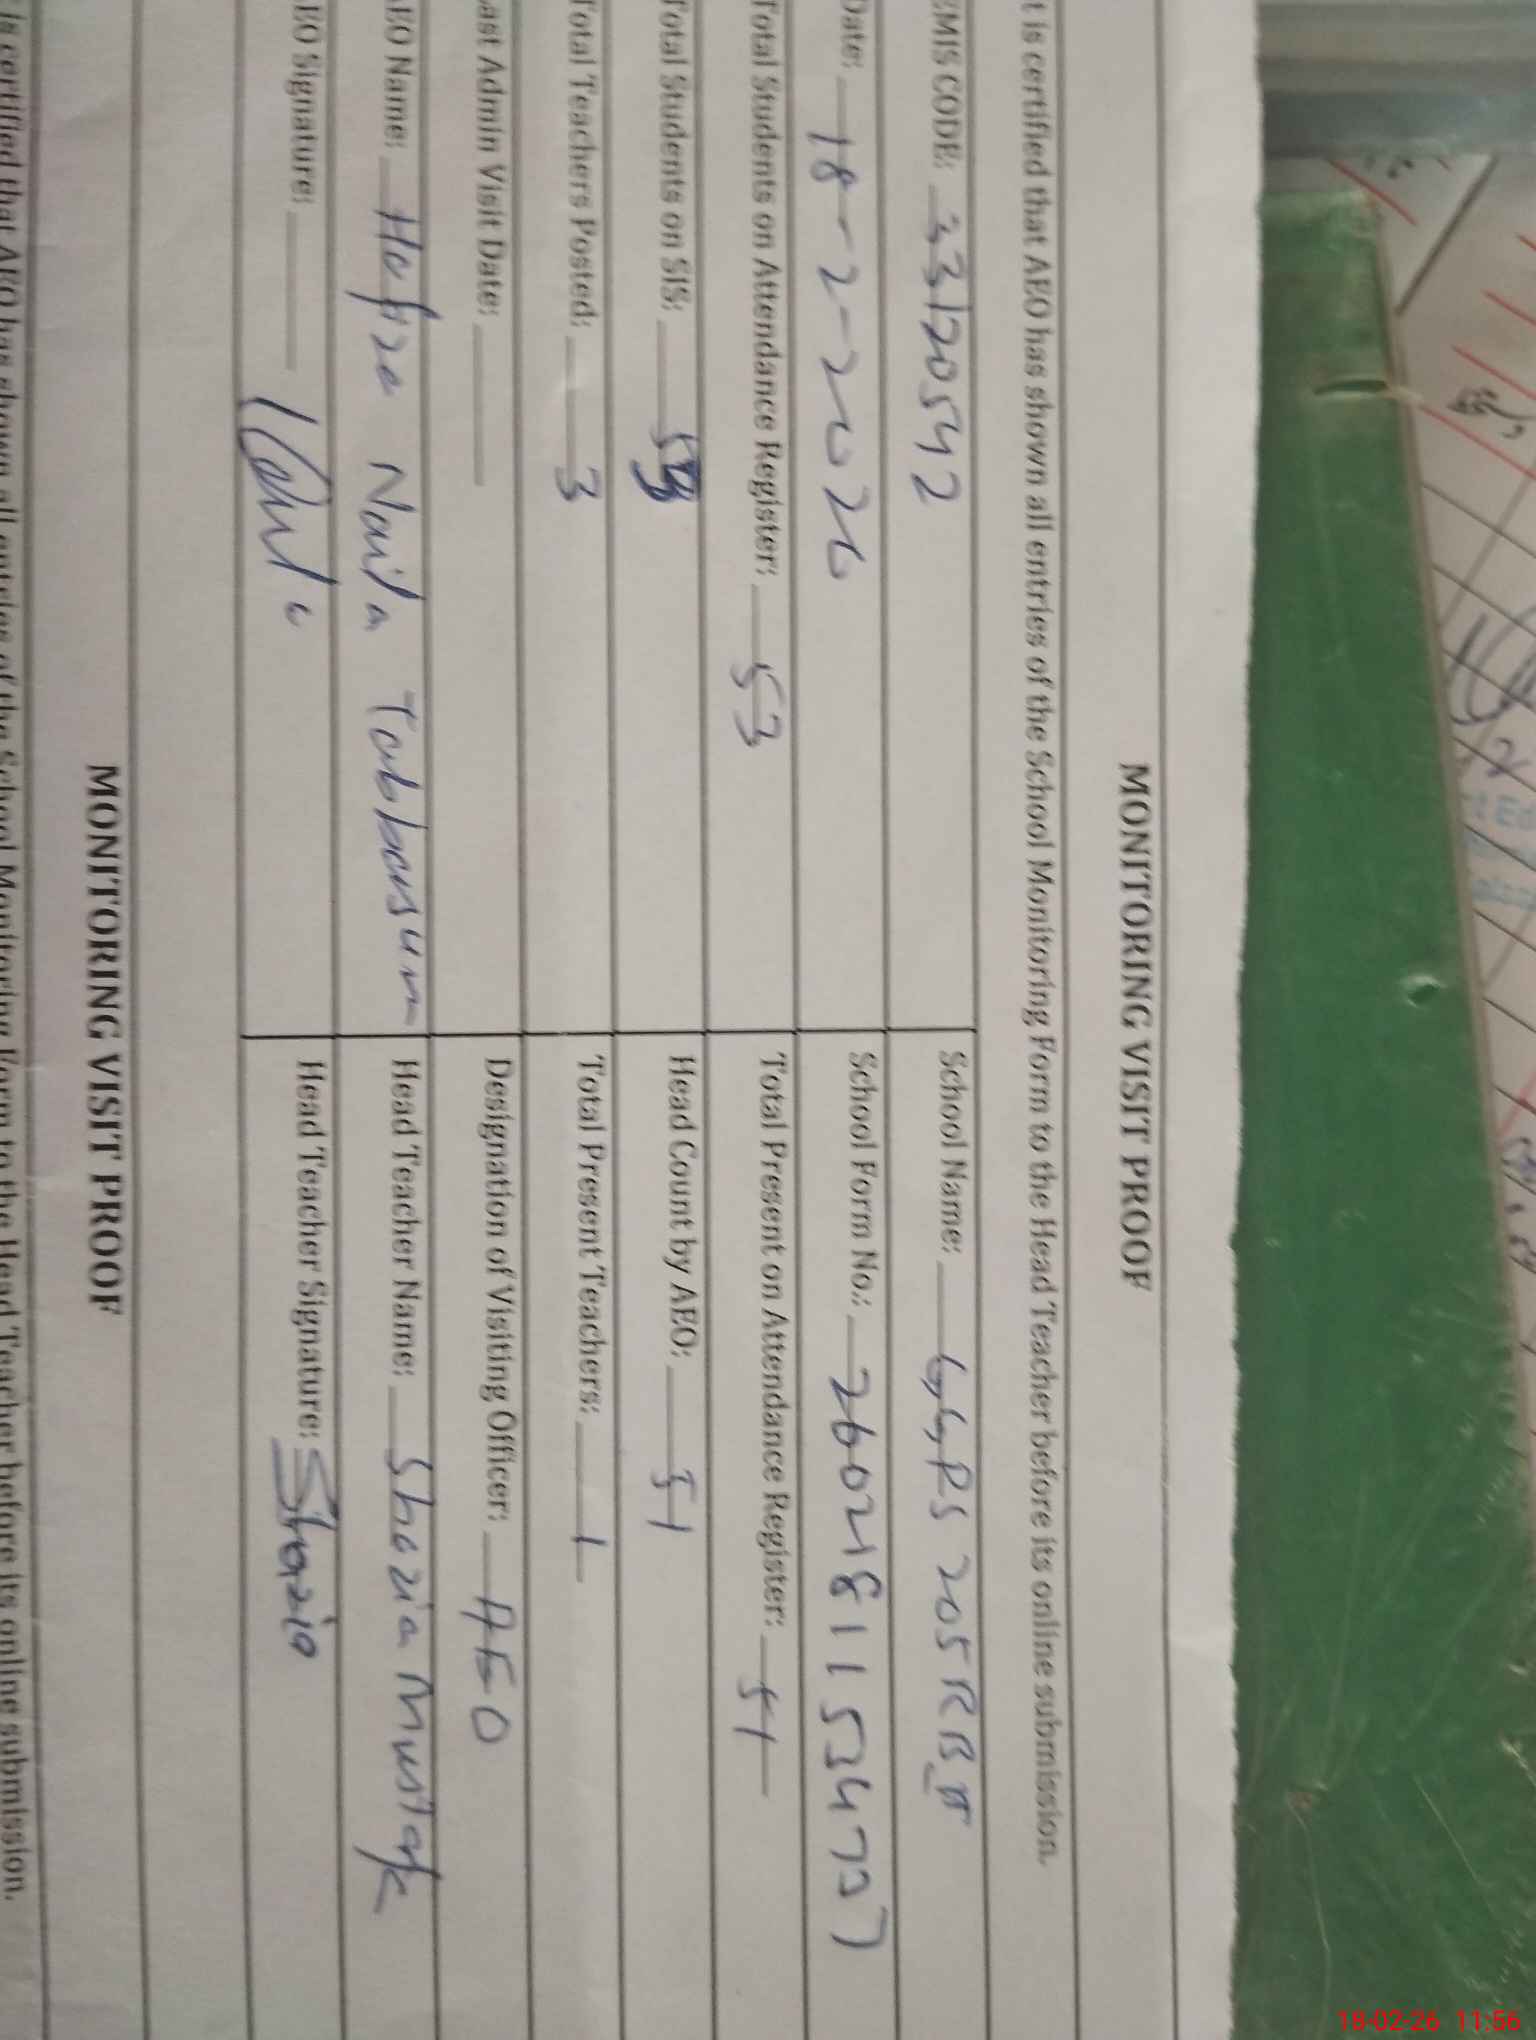 MONITORING VISIT PROOF
t is certified that AEO has shown all entries of the School Monitoring Form to the Head Teacher before its online submission.
EMIS CODE: 33120542
School Name: GGPS 205 RB II
Date: 18-2-2026
School Form No.: 260218115347
Total Students on Attendance Register: 53
Total Present on Attendance Register: 51
Total Students on SIS:
Head Count by AEO: 51
Total Teachers Posted: 3
Total Present Teachers: 1
Last Admin Visit Date:
Designation of Visiting Officer: AEO
AEO Name: Hafiza Naila Tabbasum
Head Teacher Name: Shazia Mustafa
AEO Signature:
Head Teacher Signature: Shazia
MONITORING VISIT PROOF
is certified that AEO has shown all entries of the School Monitoring Form to the Head Teacher before its online submission.
18-02-26 11:56